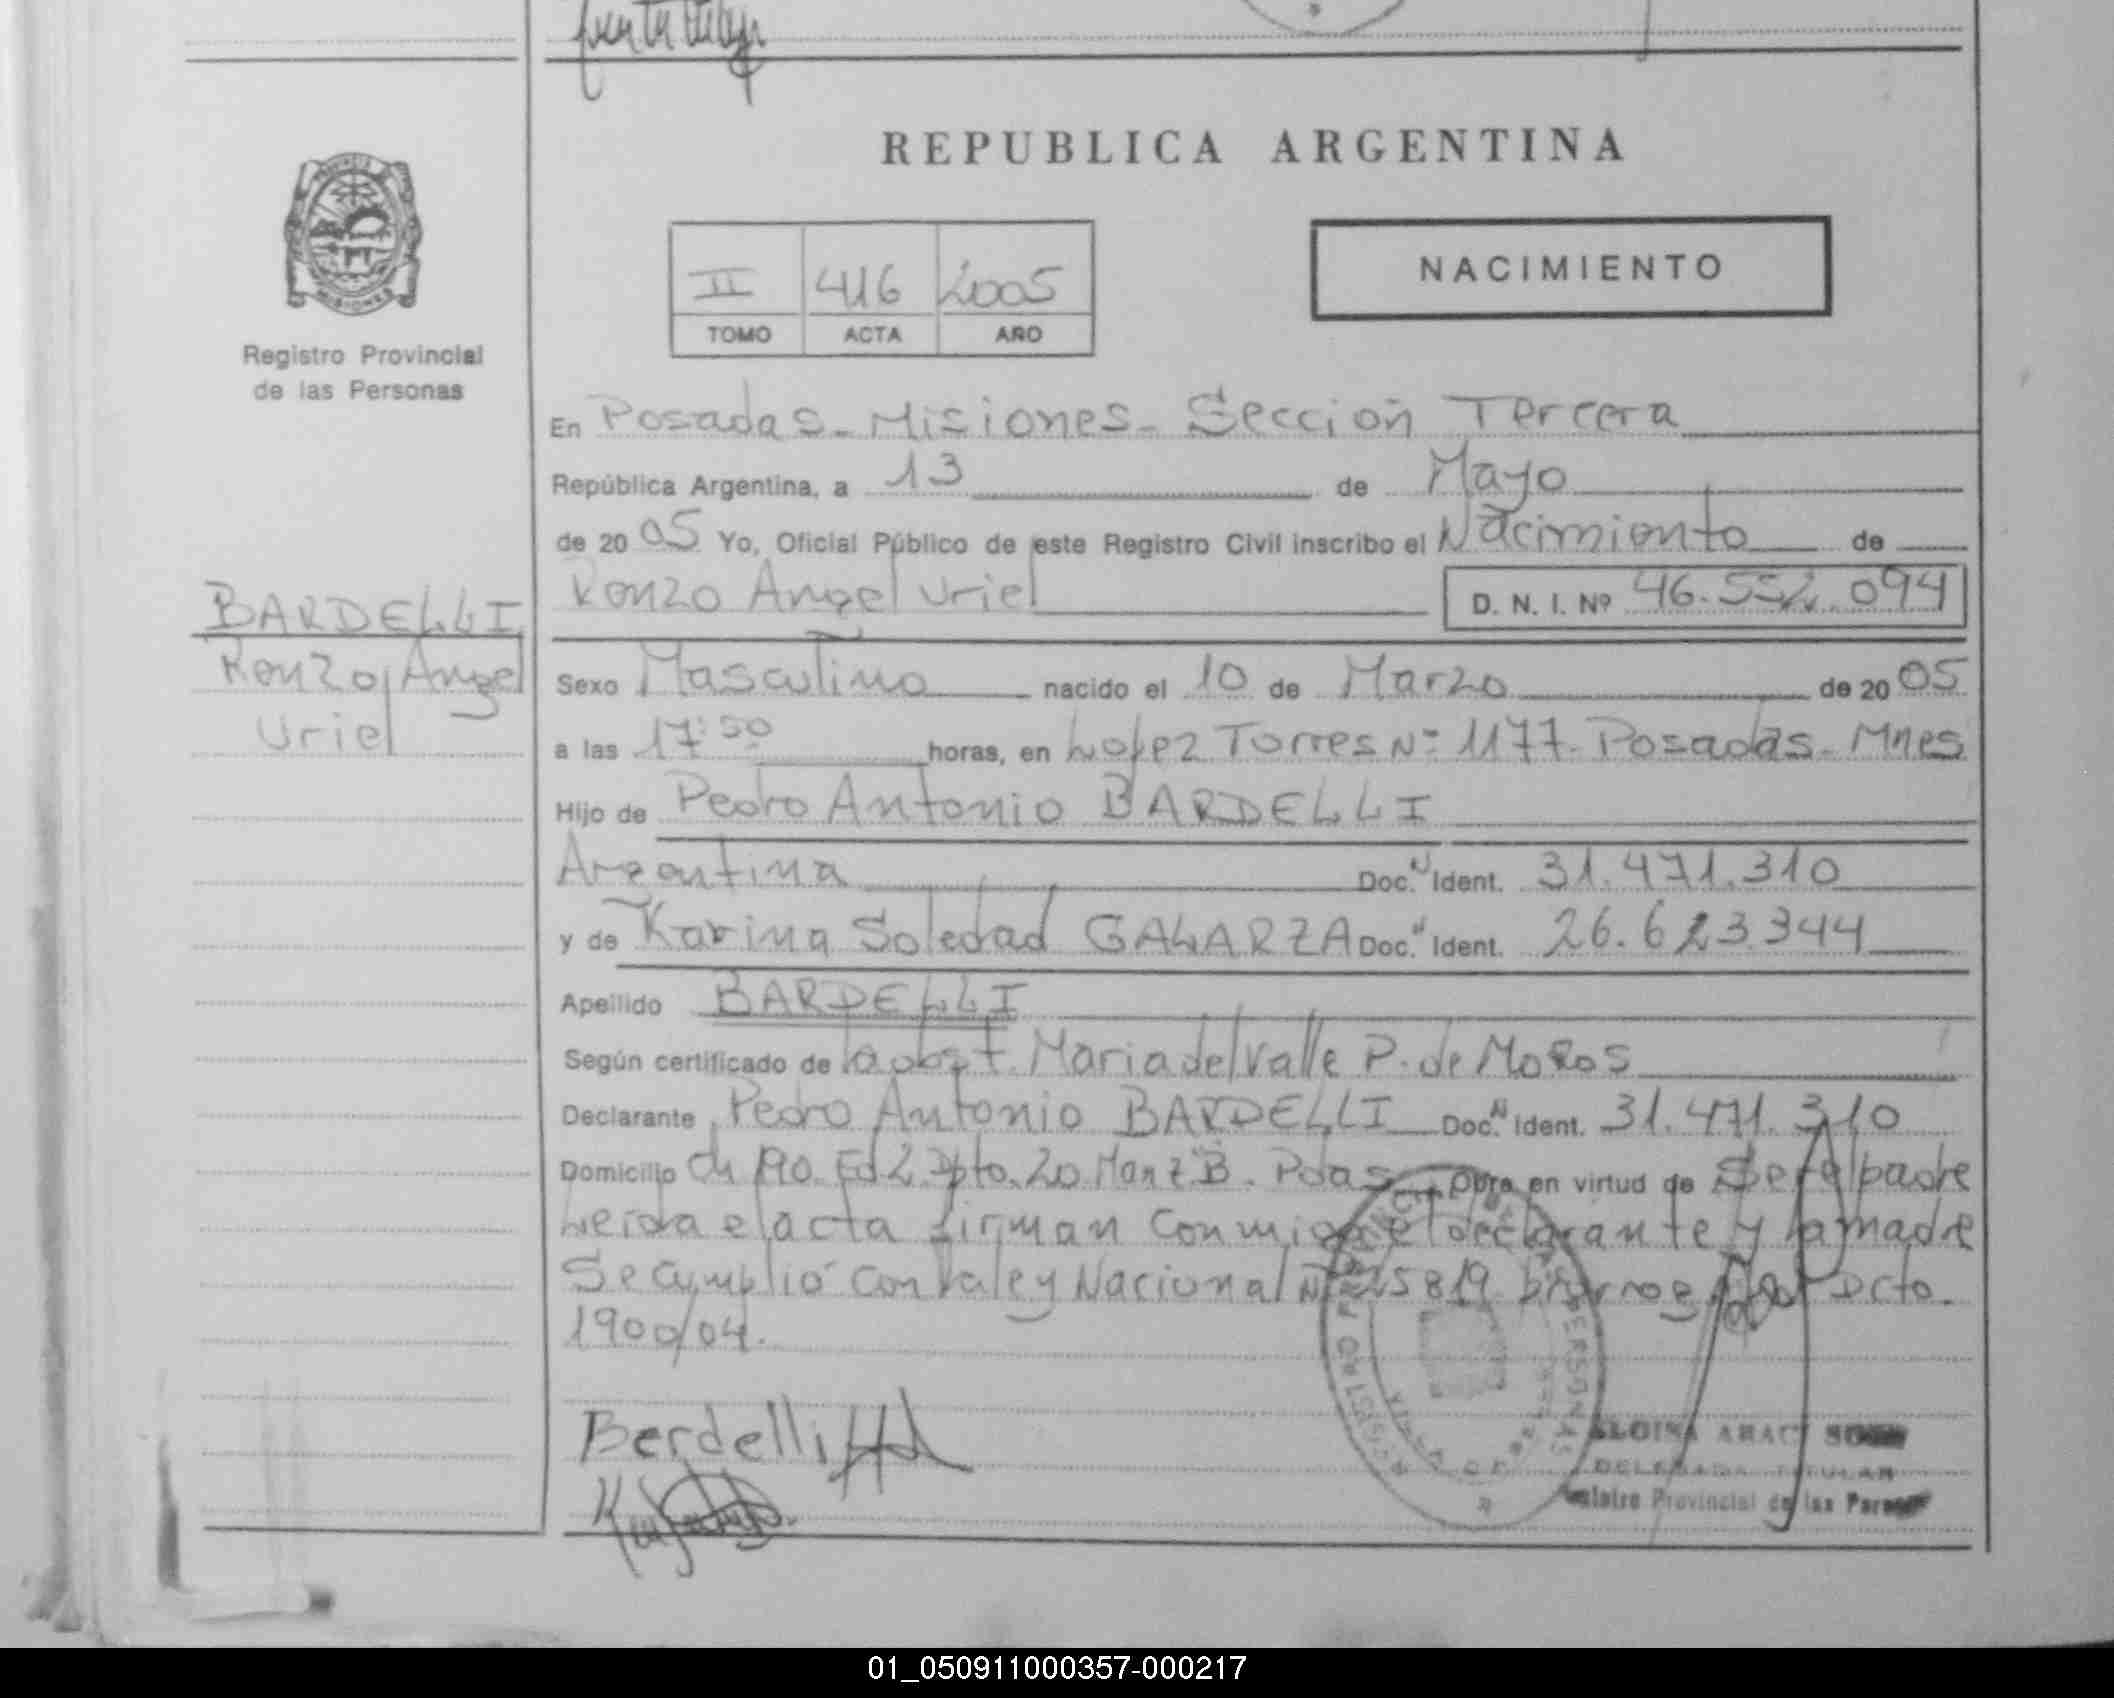 REPUBLICA ARGENTINA
PROVINCIA
MISIONES
Registro Provincial
de las Personas
II 416 2005
TOMO ACTA AÑO
NACIMIENTO
En Posadas - Misiones - Sección Tercera
República Argentina, a 13 de Mayo
de 2005 Yo, Oficial Público de este Registro Civil inscribo el Nacimiento de
Renzo Angel Uriel D. N. I. Nº 46.552.094
BARDELLI
Renzo Angel
Uriel
Sexo Masculino nacido el 10 de Marzo de 2005
a las 17:50 horas, en Lopez Torres Nº 1177 - Posadas - Mnes
Hijo de Pedro Antonio BARDELLI
Argentina Doc. N Ident. 31.471.310
y de Karina Soledad GALARZA Doc. N Ident. 26.623.344
Apellido BARDELLI
Según certificado de la obst. Maria del Valle P. de MoRos
Declarante Pedro Antonio BARDELLI Doc. N Ident. 31.471.310
Domicilio Ch 190. Ed 2. Dpto. 20 Manz B. Pdas Obra en virtud de Ser el padre
Leida el acta firman conmigo el declarante y la madre
Se cumplió con la ley Nacional Nº 25819 Dcto.
1900/04.
Berdelli
DELEGADA TITULAR
Provincial de las
01_050911000357-000217